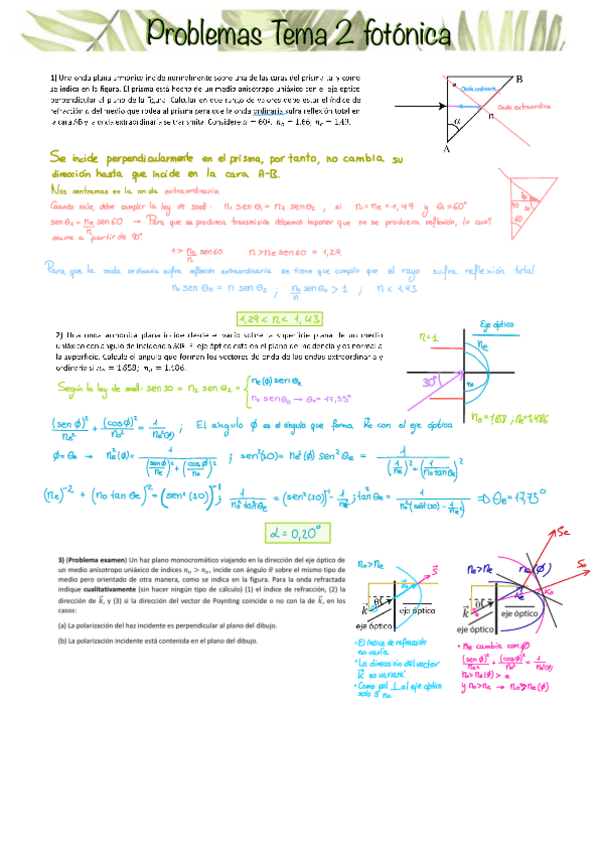 Problemas Tema 2 fotónica
1) Una onda plana armónica incide normalmente sobre una de las caras del prisma tal y como
se indica en la figura. El prisma está hecho de un medio anisótropo uniáxico con el eje óptico
perpendicular al plano de la figura. Calcular en que rango de valores debe estar el índice de
refracción n del medio que rodea al prisma para que la onda ordinaria sufra reflexión total en
la cara AB y la onda extraordinaria se transmita. Considere α = 60º, nₒ = 1.66, nₑ = 1.49.
B
Onda ordinaria
Onda extraordinaria
n
α
A
Se incide perpendicularmente en el prisma, por tanto, no cambia su
dirección hasta que incide en la cara A-B.
Nos centramos en la onda extraordinaria
Cuando sale, debe cumplir la ley de snell: n₁ sen θ₁ = n₂ sen θ₂ , si n₁ = nₑ = 1,49 y θ₁ = 60°
sen θ₂ = nₑ/n sen 60 → Para que se produzca transmisión debemos imponer que no se produzca reflexión, la cual
ocurre a partir de 90°.
1 > nₑ/n sen 60 n > nₑ sen 60 = 1,29
Para que la onda ordinaria sufra reflexión extraordinaria se tiene que cumplir que el rayo sufra reflexión total
nₒ sen θₒ = n sen θ₂ ; nₒ/n sen θₒ > 1 ; n < 1,43
1,29 < n < 1,43
2) Una onda armónica plana incide desde el vacío sobre la superficie plana de un medio
uniáxico con ángulo de incidencia 30º. El eje óptico está en el plano de incidencia y es normal a
la superficie. Calcule el ángulo que forman los vectores de onda de las ondas extraordinaria y
ordinaria si nₒ = 1.658; nₑ = 1.486.
Eje óptico
n=1
nₑ
30°
nₒ = 1,658 ; nₑ = 1,486
Según la ley de snell: sen 30 = n₂ sen θ₂ = { nₑ(ϕ) sen θₑ
nₒ sen θₒ → θₒ = 17,55°
(sen ϕ)²/nₑ² + (cos ϕ)²/nₒ² = 1/nₑ²(ϕ) ; El ángulo ϕ es el ángulo que forma k⃗ₑ con el eje óptico
ϕ = θₑ → nₑ²(ϕ) = 1/((sen ϕ/nₑ)² + (cos ϕ/nₒ)²) ; sen²(30) = nₑ²(ϕ) sen² θₑ = 1/((1/nₑ)² + (1/(nₒ tan θₑ))²)
(nₑ)⁻² + (nₒ tan θₑ)⁻² = (sen²(30))⁻¹ ; 1/(nₒ² tan² θₑ) = (sen²(30))⁻¹ - 1/nₑ² ; tan² θₑ = 1/(nₒ² (sen²(30)⁻¹ - 1/nₑ²)) => θₑ = 17,75°
α = 0,20°
3) (Problema examen) Un haz plano monocromático viajando en la dirección del eje óptico de
un medio anisótropo uniáxico de índices nₒ > nₑ, incide con ángulo θ sobre el mismo tipo de
medio pero orientado de otra manera, como se indica en la figura. Para la onda refractada
indique cualitativamente (sin hacer ningún tipo de cálculo) (1) el índice de refracción, (2) la
dirección de k⃗, y (3) si la dirección del vector de Poynting coincide o no con la de k⃗, en los
casos:
(a) La polarización del haz incidente es perpendicular al plano del dibujo.
(b) La polarización incidente está contenida en el plano del dibujo.
nₒ > nₑ
S⃗
k⃗
θ
eje óptico
eje óptico
• El índice de refracción
no varía.
• La dirección del vector
k⃗ no variará.
nₒ > nₑ
nₑ(ϕ)
Sₑ
Sₒ
k⃗
θ
eje óptico
eje óptico
• nₑ cambia con ϕ
(sen ϕ)²/nₑ² + (cos ϕ)²/nₒ² = 1/nₑ²(ϕ)
y nₒ > nₑ → nₒ > nₑ(ϕ)